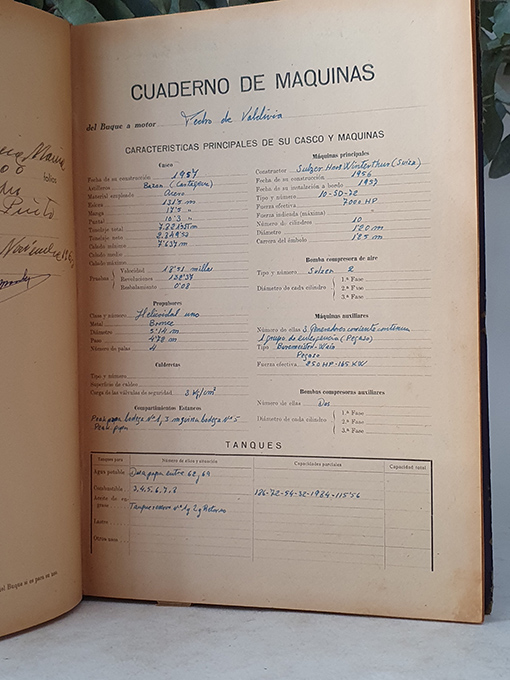 folios
Noviembre 196
CUADERNO DE MAQUINAS
del Buque a motor Pedro de Valdivia
CARACTERISTICAS PRINCIPALES DE SU CASCO Y MAQUINAS
Casco
Fecha de su construcción 1957
Astilleros Bazan (Cartagena)
Material empleado Acero
Eslora 131'5 m
Manga 17'5
Puntal 10'3
Tonelaje total
Tonelaje neto
Calado mínimo 7'637 m
Calado medio
Calado máximo
Pruebas
Velocidad 18'51 millas
Revoluciones
Resbalamiento 0'08
Propulsores
Clase y número Helicoidal uno
Metal Bronce
Diámetro 5'14 m
Paso 4'72 m
Número de palas 4
Calderetas
Tipo y número
Superficie de caldeo
Carga de las válvulas de seguridad 3 Kg/cm²
Compartimientos Estancos
Peak popa bodega Nº 1, 3 maquina bodega Nº 5
Peak popa
Máquinas principales
Constructor Sulzer Hnos Winterthur (Suiza)
Fecha de su construcción 1956
Fecha de su instalación a bordo 1957
Tipo y número 10-SD-72
Fuerza efectiva 7000 HP
Fuerza indicada (máxima)
Número de cilindros 10
Diámetro
Carrera del émbolo
Bomba compresora de aire
Tipo y número Sulzer 2
Diámetro de cada cilindro
1.ª Fase
2.ª Fase
3.ª Fase
Máquinas auxiliares
Número de ellas 3 Generadores corriente continua
1 grupo de emergencia (Pegaso)
Tipo
Pegaso
Fuerza efectiva 250 HP-165 KW
Bombas compresoras auxiliares
Número de ellas Dos
Diámetro de cada cilindro
1.ª Fase
2.ª Fase
3.ª Fase
TANQUES
Tanques para
Número de ellos y situación
Capacidades parciales
Capacidad total
Agua potable Dos a popa entre 62 y 69
Combustible 3, 4, 5, 6, 7, 8
186-72-54-32-1984-115'56
Aceite de engrase Tanque reserva nº 1 y 2 y Retorno
Lastre
Otros usos